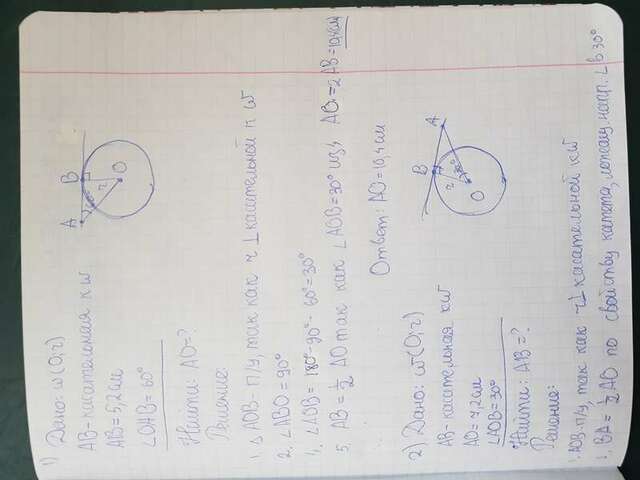 1) Дано: w(O; r)
AB - касательная к w
AB = 5,2 см
∠OAB = 60°
Найти: AO = ?
Решение
1. △AOB - п/у, так как r ⊥ касательной к w
2. ∠ABO = 90°
∠AOB = 180° - 90° - 60° = 30°
5. AB = 1/2 AO так как ∠AOB = 30° AO = 2AB = 10,4 см
Ответ: AO = 10,4 см
A B
r
O
2) Дано: w(O; r)
AB - касательная к w
AO = 7,2 см
∠AOB = 30°
Найти: AB = ?
Решение:
AOB - п/у, так как r ⊥ касательной к w
BA = 1/2 AO по свойству катета, лежащ. напр. ∠ в 30°
B A
r 30°
O